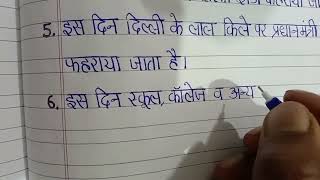 5. इस दिन दिल्ली के लाल किले पर प्रधानमंत्री
फहराया जाता है।
6. इस दिन स्कूल, कॉलेज व अन्य